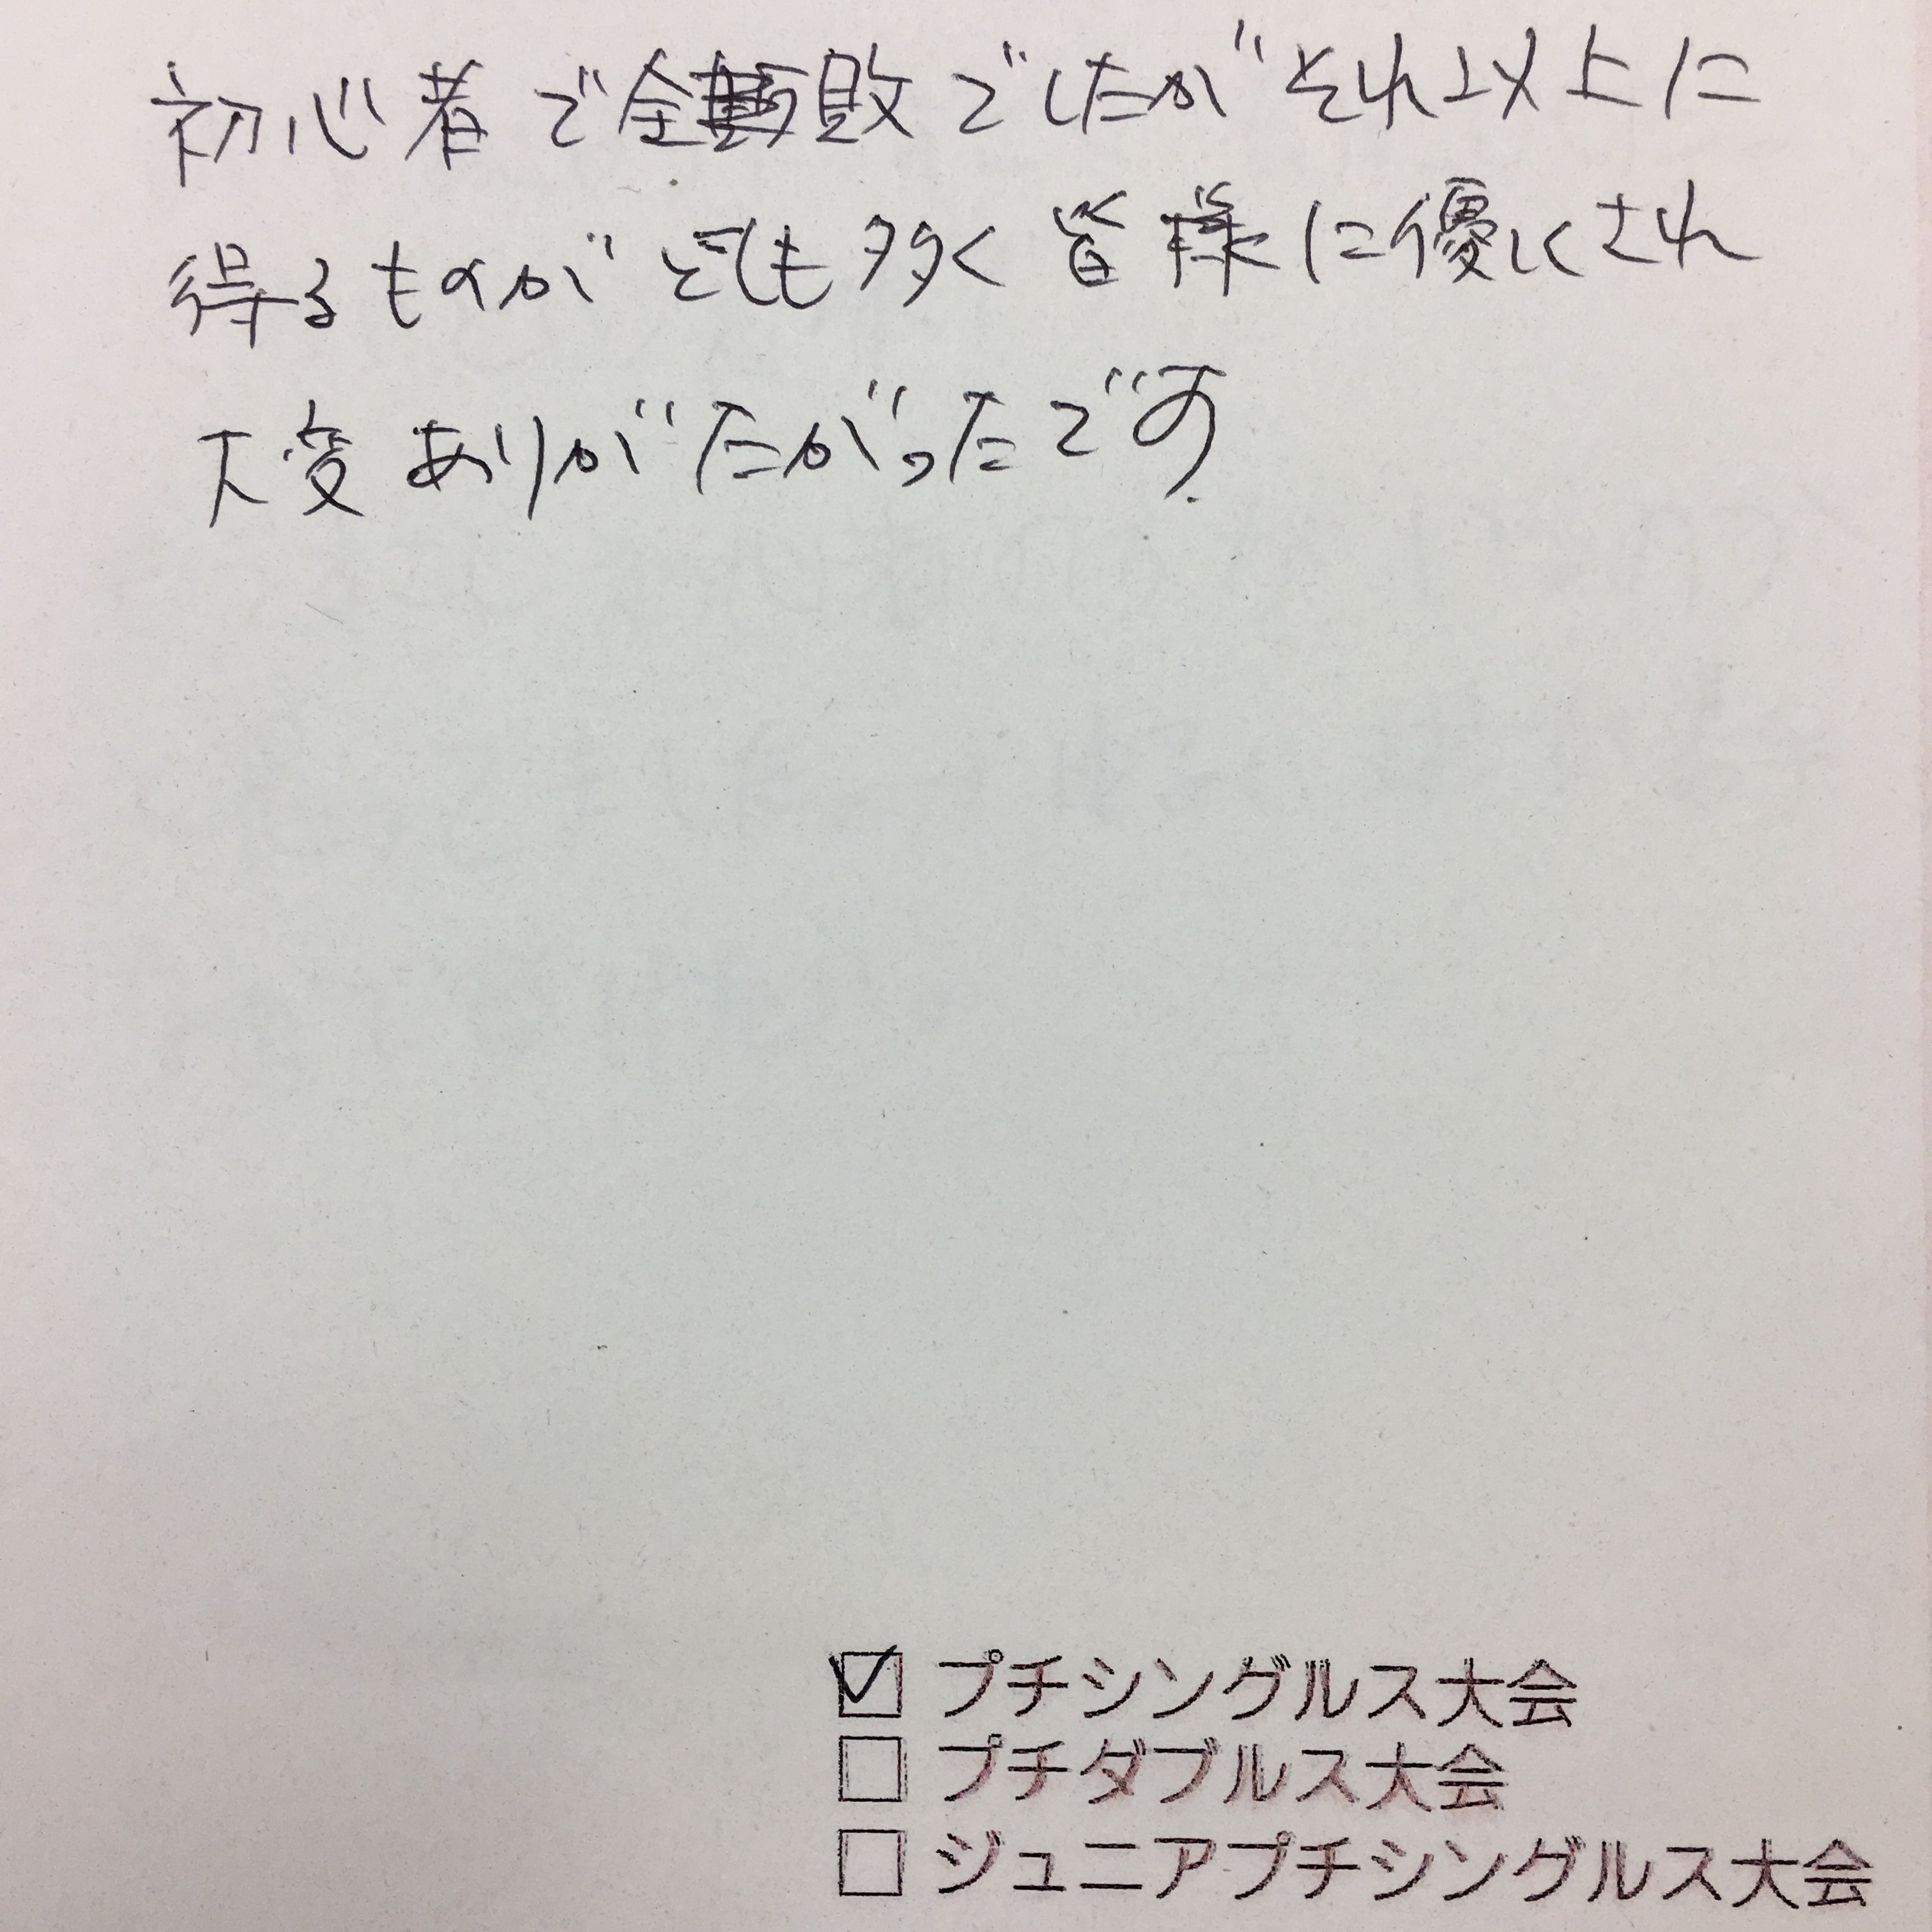 初心者で全敗でしたがそれ以上に
得るものがとても多く皆様に優しくされ
大変ありがたがったです.
☑ プチシングルス大会
☐ プチダブルス大会
☐ ジュニアプチシングルス大会